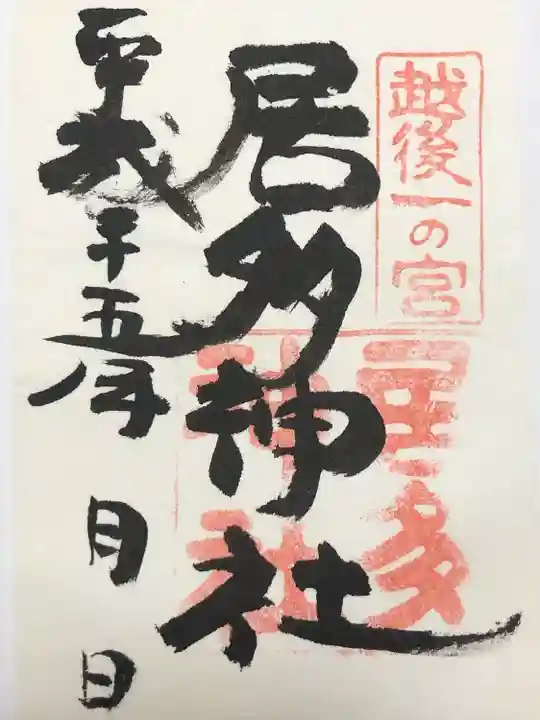 越後一の宮
居多神社
居多
神社
平成
年
月
日